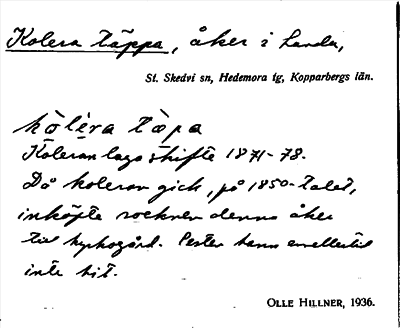 Kolera täppa, åker i Landa,
St. Skedvi sn, Hedemora tg, Kopparbergs län.
kòlèra tæ̀pa
Koleran laga skifte 1871-78.
Då koleran gick, på 1850-talet,
inköpte socknen denna åker
till kyrkogård. Pesten hann emellertid
inte hit.
OLLE HILLNER, 1936.